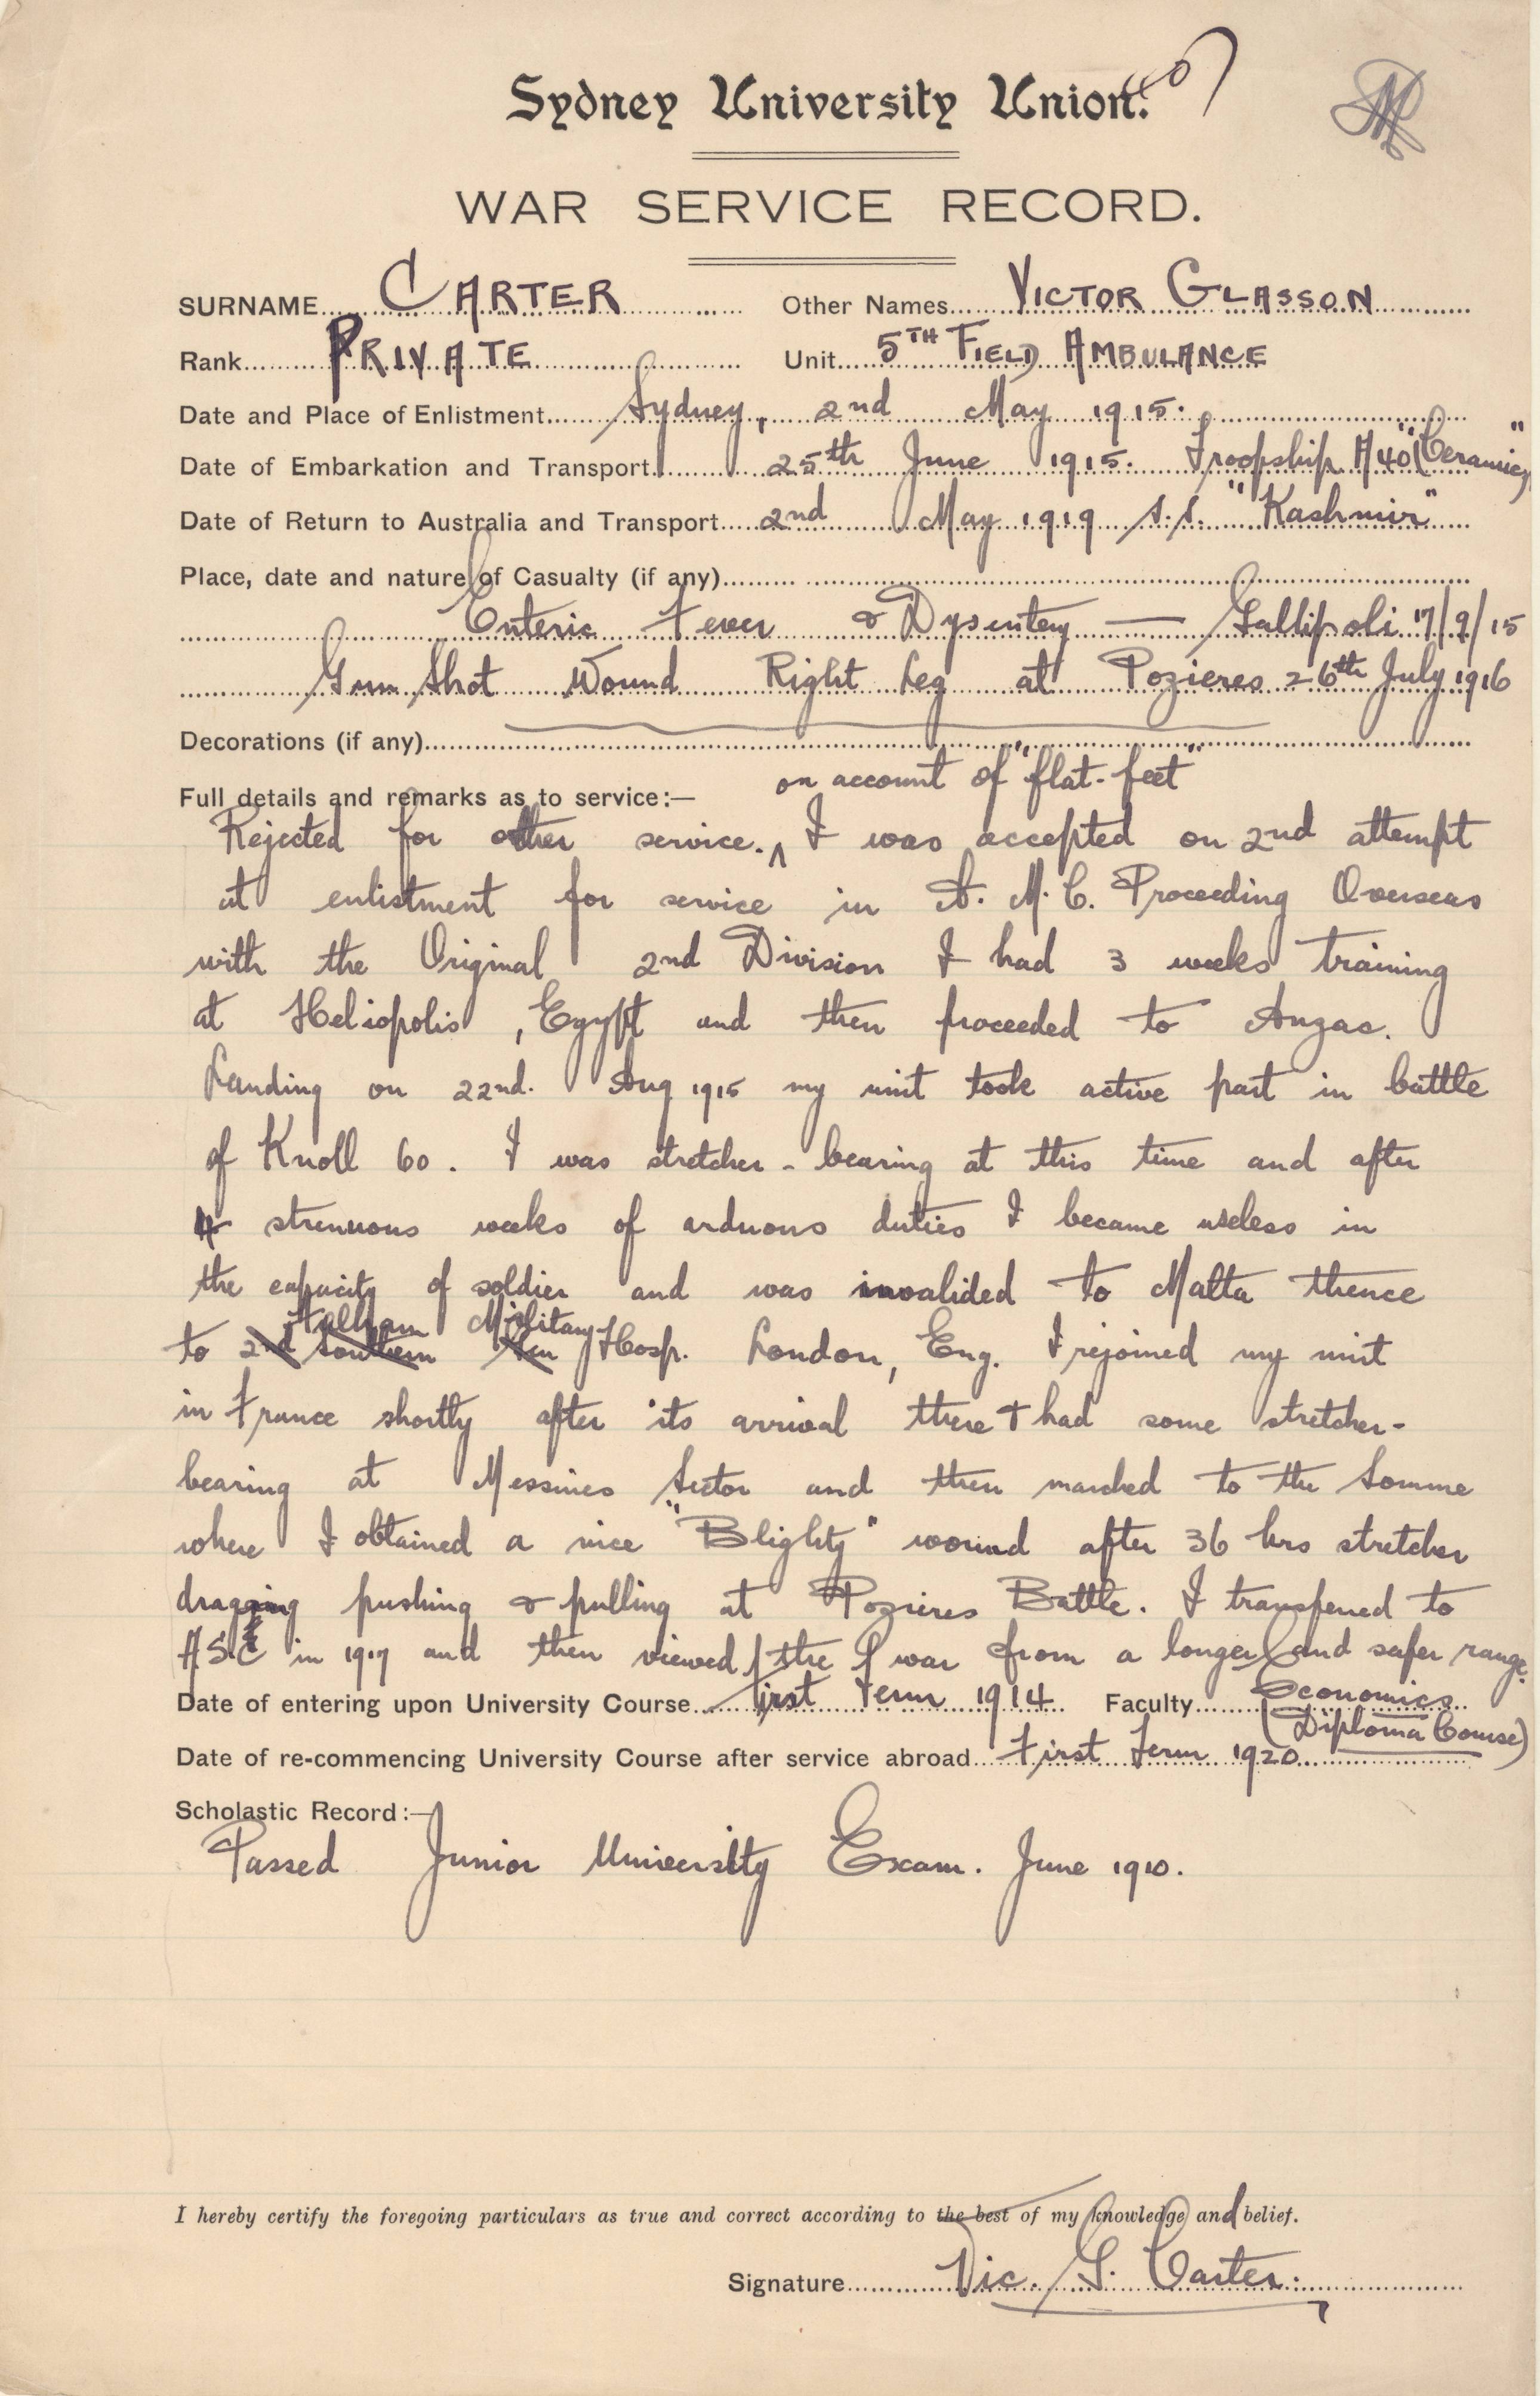 Sydney University Union.
WAR SERVICE RECORD.
SURNAME CARTER Other Names VICTOR GLASSON
Rank PRIVATE Unit 5TH FIELD AMBULANCE
Date and Place of Enlistment Sydney, 2nd May 1915.
Date of Embarkation and Transport 25th June 1915. Troopship A40 ("Ceramic")
Date of Return to Australia and Transport 2nd May 1919 s.s. "Kashmir"
Place, date and nature of Casualty (if any)
Enteric Fever & Dysentery — Gallipoli 17/9/15
Gun Shot Wound Right Leg at Pozieres 26th July 1916
Decorations (if any)
on account of "flat-feet"
Full details and remarks as to service:—
Rejected for other service. ^ I was accepted on 2nd attempt
at enlistment for service in A. M. C. Proceeding Overseas
with the Original 2nd Division I had 3 weeks training
at Heliopolis, Egypt and then proceeded to Anzac.
Landing on 22nd. Aug 1915 my unit took active part in battle
of Knoll 60. I was stretcher-bearing at this time and after
4 strenuous weeks of arduous duties I became useless in
the capacity of soldier and was invalided to Malta thence
Fulham Military
to 2nd Southern Hosp. London, Eng. I rejoined my unit
in France shortly after its arrival there & had some stretcher-
bearing at Messines Sector and then marched to the Somme
where I obtained a nice "Blighty" wound after 36 hrs stretcher
dragging pushing & pulling at Pozieres Battle. I transferred to
ASC in 1917 and then viewed the war from a longer and safer range.
Date of entering upon University Course First Term 1914 Faculty Economics
(Diploma Course)
Date of re-commencing University Course after service abroad First Term 1920
Scholastic Record:—
Passed Junior University Exam. June 1910.
I hereby certify the foregoing particulars as true and correct according to the best of my knowledge and belief.
Signature Vic. G. Carter.